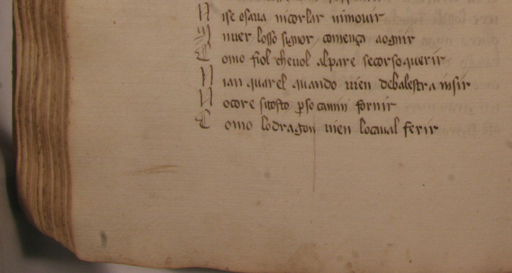 N ise osaua nicorlar nimouir
M nuer losso signor comença aognir
C omo fiol cheuol alpare secorso querir
N ian quarel quando uien debalestra insir
N ocore sitosto p so camin fornir
C omo lodragon uien locaual ferir